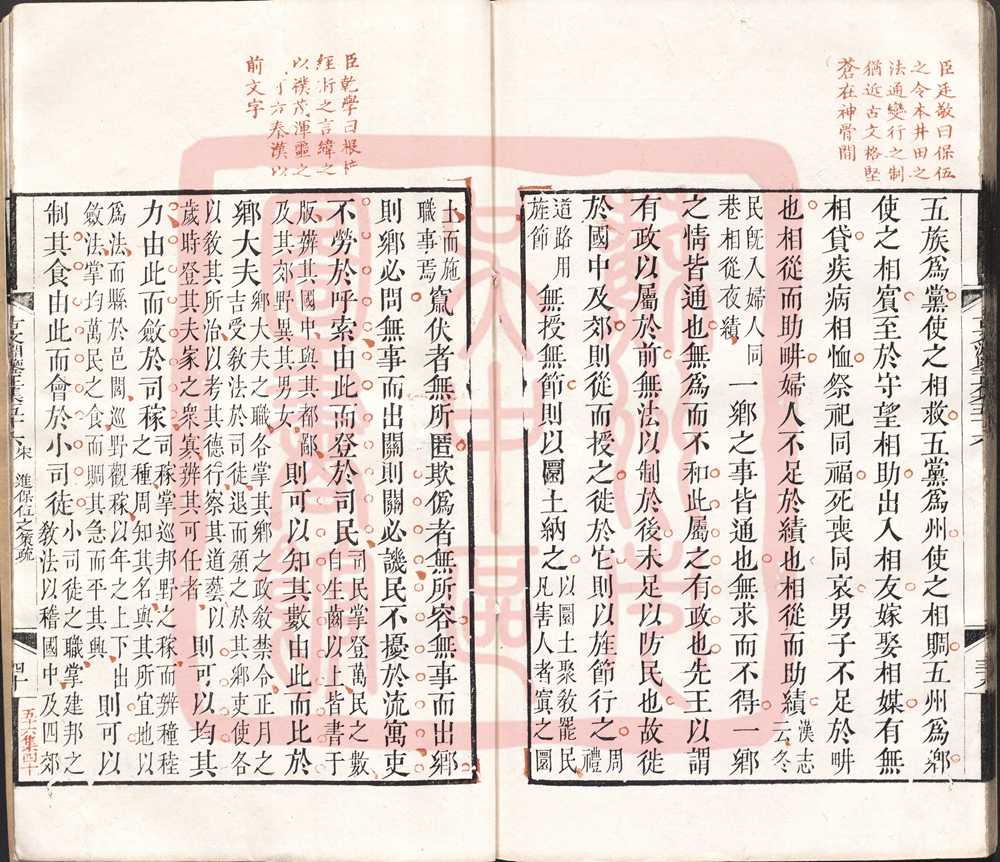 臣廷敬曰保伍
之令本井田之
法通變行之制
猶近古文格堅
蒼在神骨間
五族爲黨使之相救五黨爲州使之相賙五州爲鄕
使之相賓至於守望相助出入相友嫁娶相媒有無
相貸疾病相恤祭祀同福死喪同哀男子不足於畊
也相從而助畊婦人不足於績也相從而助績漢志云冬
民旣入婦人同巷相從夜績一鄕之事皆通也無求而不得一鄕
之情皆通也無爲而不和此屬之有政也先王以謂
有政以屬於前無法以制於後未足以防民也故徙
於國中及郊則從而授之徙於它則以旌節行之周禮
道路用旌節無授無節則以圜土納之以圜土聚敎罷民凡害人者寘之圜
臣乾學曰根
經術之言緯之
以樸茂渾噩之
可方秦漢以
前文字
土而施職事焉竄伏者無所匿欺僞者無所容無事而出鄕
則鄕必問無事而出關則關必譏民不擾於流寓吏
不勞於呼索由此而登於司民司民掌登萬民之數自生齒以上皆書于
版辨其國中與其都鄙及其郊野異其男女則可以知其數由此而比於
鄕大夫鄕大夫之職各掌其鄕之政敎禁令正月之吉受敎法於司徒退而頒之於其鄕吏使各
以敎其所治以考其德行察其道藝以歲時登其夫家之衆寡辨其可任者則可以均其
力由此而斂於司稼司稼掌巡邦野之稼而辨穜稑之種周知其名與其所宜地以
爲法而縣於邑閭巡野觀稼以年之上下出斂法掌均萬民之食而賙其急而平其興則可以
制其食由此而會於小司徒小司徒之職掌建邦之敎法以稽國中及四郊
進保伍之策疏
四十
五六集四十